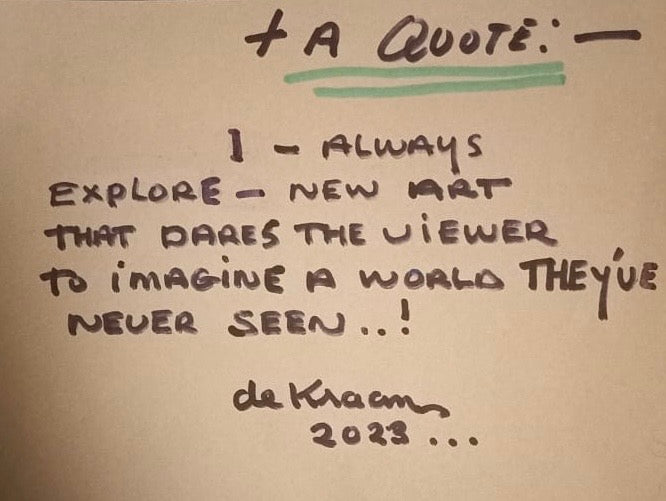 + A QUOTE: —
I - ALWAYS
EXPLORE - NEW ART
THAT DARES THE VIEWER
TO IMAGINE A WORLD THEY'VE
NEVER SEEN..!
de Kraam
2023...